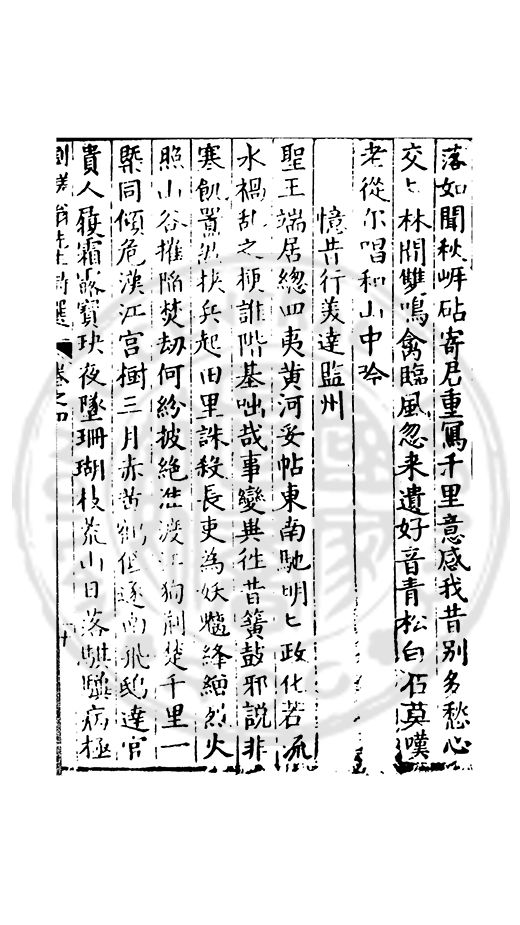 落如聞秋㟁砧寄君重寫千里意感我昔別多愁心
交交林間雙鳴禽臨風忽来遺好音青松白石莫嘆
老從尔唱和山中吟
憶昔行美達監州
聖王端居總四夷黄河妥帖東南馳明明政化若流
水禍乱之梗誰階基咄哉事變興徃昔簧鼓邪說非
寒飢置兵起田里誅殺長吏為妖絳繒烈火
照山谷摧陷焚劫何紛披絶淮渡江狗荆楚千里一
槩同傾危漢江宫樹三月赤黄低逐南飛鴟達官
貴人履霜露寳玦夜墜珊瑚枝荒山日落騏驎病極
翁先生詩選 卷之四
十